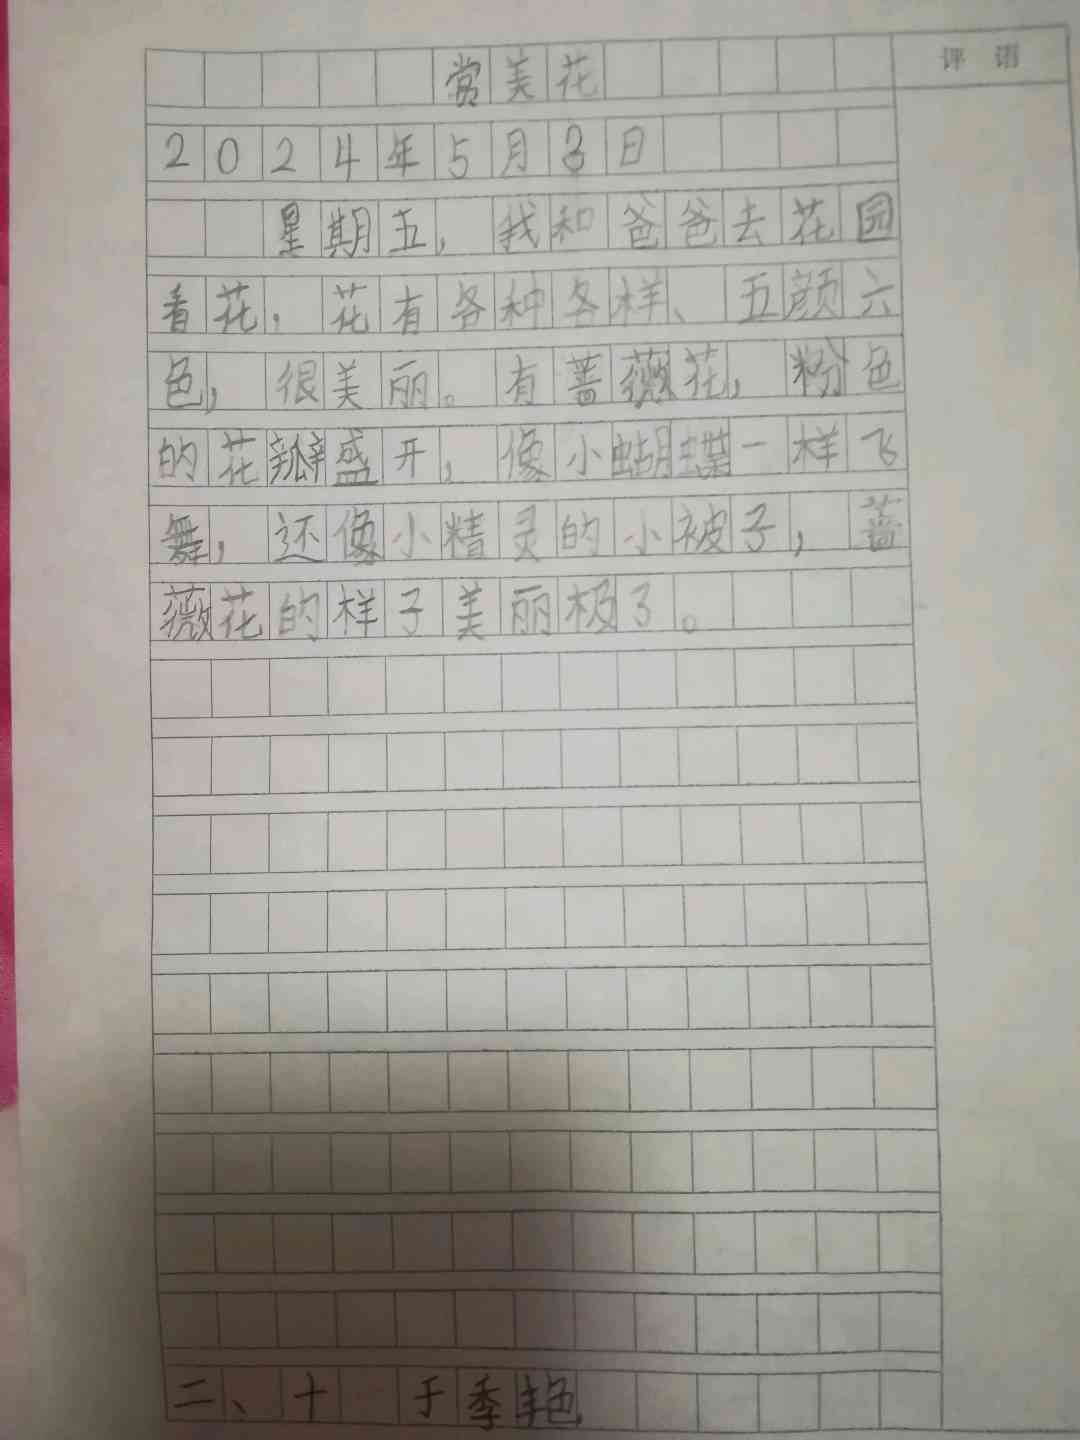 赏美花
评语
2024年5月3日
星期五，我和爸爸去花园
看花，花有各种各样、五颜六
色，很美丽。有蔷薇花，粉色
的花瓣盛开，像小蝴蝶一样飞
舞，还像小精灵的小被子，蔷
薇花的样子美丽极了。
二、十 于季艳